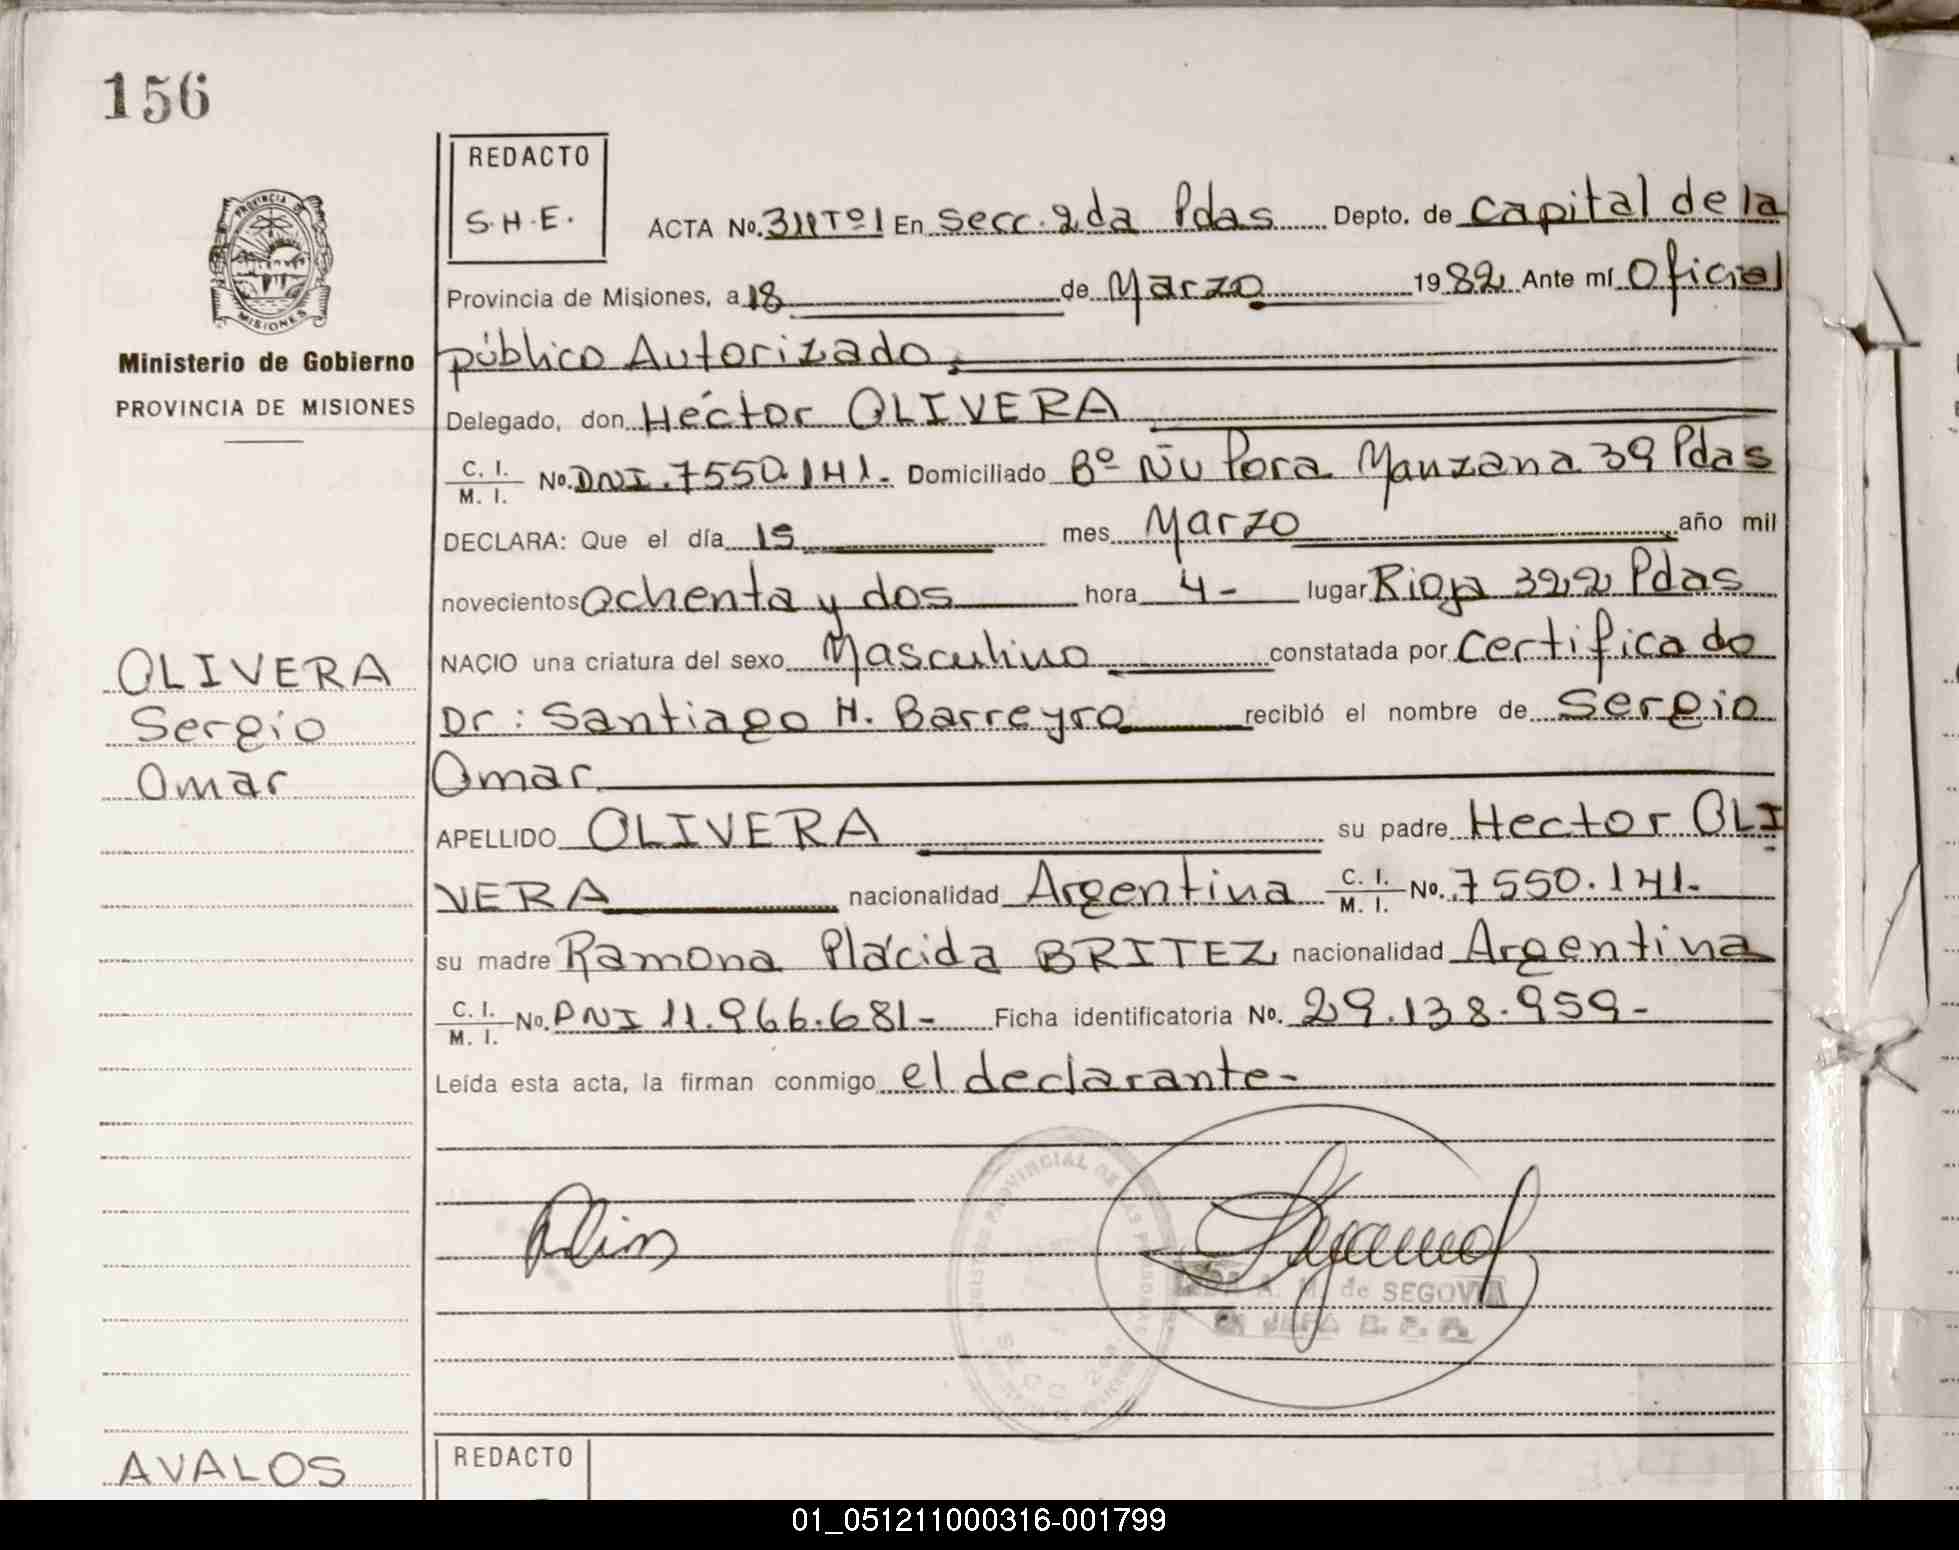 156
REDACTO
S.H.E.
PROVINCIA DE
MISIONES
Ministerio de Gobierno
PROVINCIA DE MISIONES
ACTA No. 311 Tº 1 En secc. 2da Pdas Depto. de Capital de la
Provincia de Misiones, a 18 de Marzo 1982 Ante mí Oficial
público Autorizado,
Delegado, don Héctor OLIVERA
C. I. / M. I. No. DNI. 7550.141.- Domiciliado Bº Ñu Pora Manzana 39 Pdas
DECLARA: Que el día 15 mes Marzo año mil
novecientos ochenta y dos hora 4- lugar Rioja 322 Pdas
NACIO una criatura del sexo Masculino constatada por certificado
Dr: Santiago H. Barreyro recibió el nombre de Sergio
Omar
APELLIDO OLIVERA su padre Hector OLI
VERA nacionalidad Argentina C. I. / M. I. No. 7550.141.-
su madre Ramona Plácida BRITEZ nacionalidad Argentina
C. I. / M. I. No. DNI 11.966.681- Ficha identificatoria No. 29.138.959-
Leída esta acta, la firman conmigo el declarante-
OLIVERA
Sergio
Omar
PROVINCIAL DE LAS
SECC 2da.
A. M. de SEGOVIA
JEFA
AVALOS
REDACTO
01_051211000316-001799